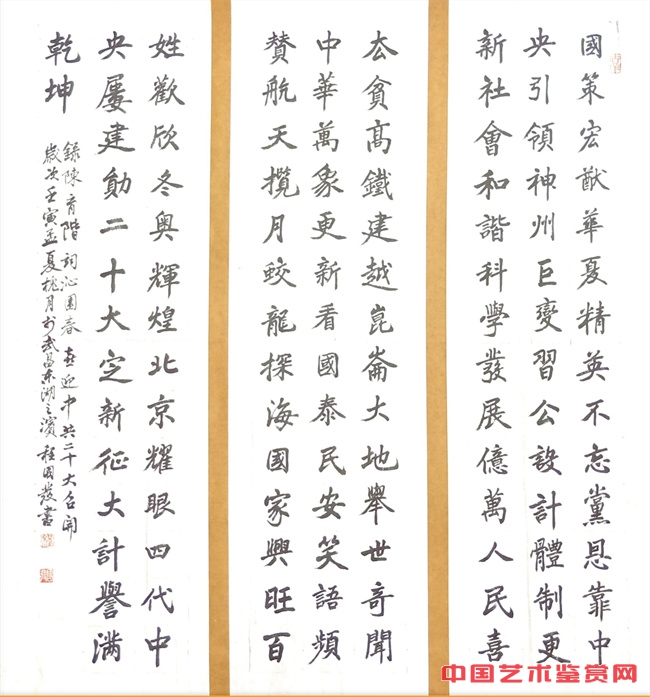 國策宏猷華夏精英不忘黨恩靠中
央引領神州巨變習公設計體制更
新社會和諧科學發展億萬人民喜
厺貧高鐵建越崑崙大地舉世奇聞
中華萬象更新看國泰民安笑語頻
贊航天攬月蛟龍探海國家興旺百
姓歡欣冬奧輝煌北京耀眼四代中
央屢建勛二十大定新征大計譽滿
乾坤
錄陳育階詞沁園春 喜迎中共二十大召開
歲次壬寅孟夏桃月於武昌東湖之濱程國發書
中国艺术鉴赏网